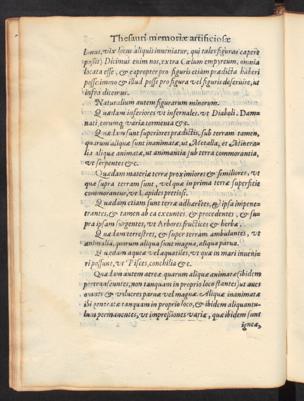 Thesauri memoriæ artificiosæ
locus, vix locus aliquis inueniatur, qui tales figuras capere
possit) Dicimus enim nos, extra Cœlum empyreum, omnia
locata esse, & eapropter pro figuris etiam prædicta haberi
posse immo & illud posse pro figura vel figuris deseruire, vt
infra dicetur.
Naturalium autem figurarum minorum.
Quædam inferiores vt infernales, vt Diaboli. Dam⸗
nati, eorumq; varia tormenta &c.
Quædam sunt superiores prædictis, sub terram tamen,
quarum aliquæ sunt inanimatæ, vt Metalla, & Minera⸗
lia aliquæ animatæ, vt animantia sub terra commorantia,
vt serpentes &c.
Quædam materiæ terræ proximiores & similiores, vt
quæ supra terram sunt, vel quæ in prima terræ superficie
commorantur, vt Lapides pretiosi.
Quædam etiam sunt terræ adhærētes, & ipsam in pene⸗
trantes, & tamen ab ea exeuntes, & procedentes, & su⸗
pra ipsam surgentes, vt Arbores fructices & herbæ.
Quædam terrestres, & super terram ambulantes, vt
animalia, quorum aliqua sunt magna, aliqua parua.
Quædam aquæ vel aquatiles, vt quæ in mari inueni⸗
ri possunt, vt Pisces, conchilia &c.
Quædam autem aereæ, quarum aliquæ animatæ ibidem
pertranseuntes, non tanquam in proprio loco stantes, vt aues
quæuis & volucres paruæ vel magnæ. Aliquæ inanimatæ
ibi generatæ tanquam in proprio loco, & ibidem aliquantu⸗
lum permanentes, vt impressiones variæ, quæ ibidem sunt
igneæ,